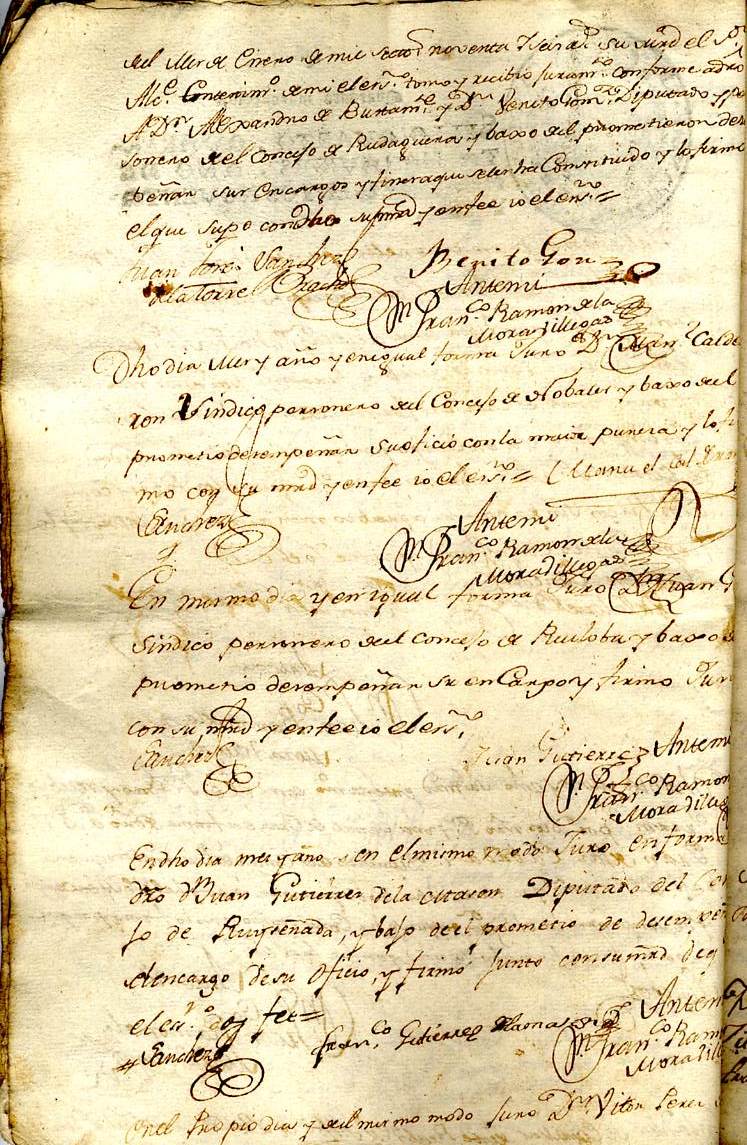 del Mes de Enero de mil setec.s noventa y seis a.s su mrd el s.or
Alc.e Contenim.o de mi el es.no tomo y recibio Juram.to conforme a dro
A D.n Alexandro de Bustam.te y D.n Benito Gom.z Diputado y
sonero del Concejo de Rudaguera y baxo del prometieron dese
peñar sus encargos y
el que supo con dho su mrd y en fee io el es.no =
Juan José Sanchez
de la Torre
Benito Gon
Antemi
Fran.co Ramon de la
Mora Villegas
Dho dia Mes y año y en igual forma Juro D.n Man.l Calde
ron Sindico personero del Concejo de Nobales y baxo del
prometio desempeñar su oficio con la maior pureza y lo fi
mo con su mrd y en fee io el es.no = Manuel Calderon
Sanchez
Antemi
Fran.co Ramon de la
Mora Villegas
En mismo dia y en igual forma Juro D.n Juan G
Sindico personero del Concejo de Ruiloba y baxo
prometio desempeñar su encargo y firmo Jun
con su mrd y en fee io el es.no
Sanchez
Juan Gutierrez Antemi
Fran.co Ramon
Mora Villeg
En dho dia mes y año, en el mismo modo Juro en forma
dro d.n Juan Gutierrez de la Diputado del Con
jo de Ruyseñada, y bajo de el prometio de desempeñ
el encargo de su oficio, y firmo junto con su mrd de q
el es.no doy fee =
Sanchez
Fran.co Gutierrez
Antem
Fran.co Ram
Mora Vill
en el Propio dia y del mismo modo Juro D.n Vitor Perez